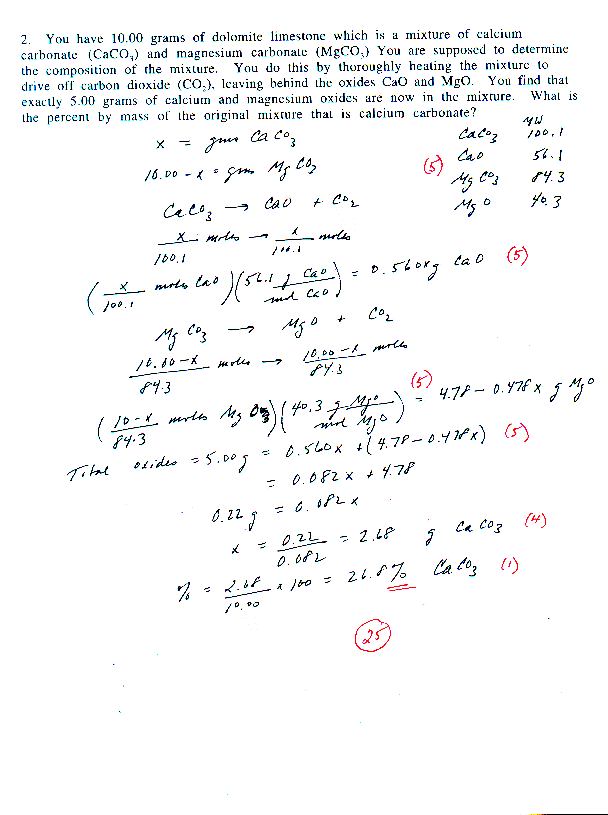 2. You have 10.00 grams of dolomite limestone which is a mixture of calcium
carbonate (CaCO₃) and magnesium carbonate (MgCO₃) You are supposed to determine
the composition of the mixture. You do this by thoroughly heating the mixture to
drive off carbon dioxide (CO₂), leaving behind the oxides CaO and MgO. You find that
exactly 5.00 grams of calcium and magnesium oxides are now in the mixture. What is
the percent by mass of the original mixture that is calcium carbonate?
MW
x = gms CaCO₃ CaCO₃ 100.1
10.00 - x = gms MgCO₃ (5) CaO 56.1
MgCO₃ 84.3
CaCO₃ → CaO + CO₂ MgO 40.3
x/100.1 moles → x/100.1 moles
(x/100.1 moles CaO)(56.1 g CaO/mol CaO) = 0.560x g CaO (5)
MgCO₃ → MgO + CO₂
10.00-x/84.3 moles → 10.00-x/84.3 moles
(10-x/84.3 moles MgO)(40.3 g MgO/mol MgO) (5) = 4.78 - 0.478x g MgO
Total oxides = 5.00 g = 0.560x + (4.78 - 0.478x) (5)
= 0.082x + 4.78
0.22 g = 0.082x
x = 0.22/0.082 = 2.68 g CaCO₃ (4)
% = 2.68/10.00 x 100 = 26.8% CaCO₃ (1)
25